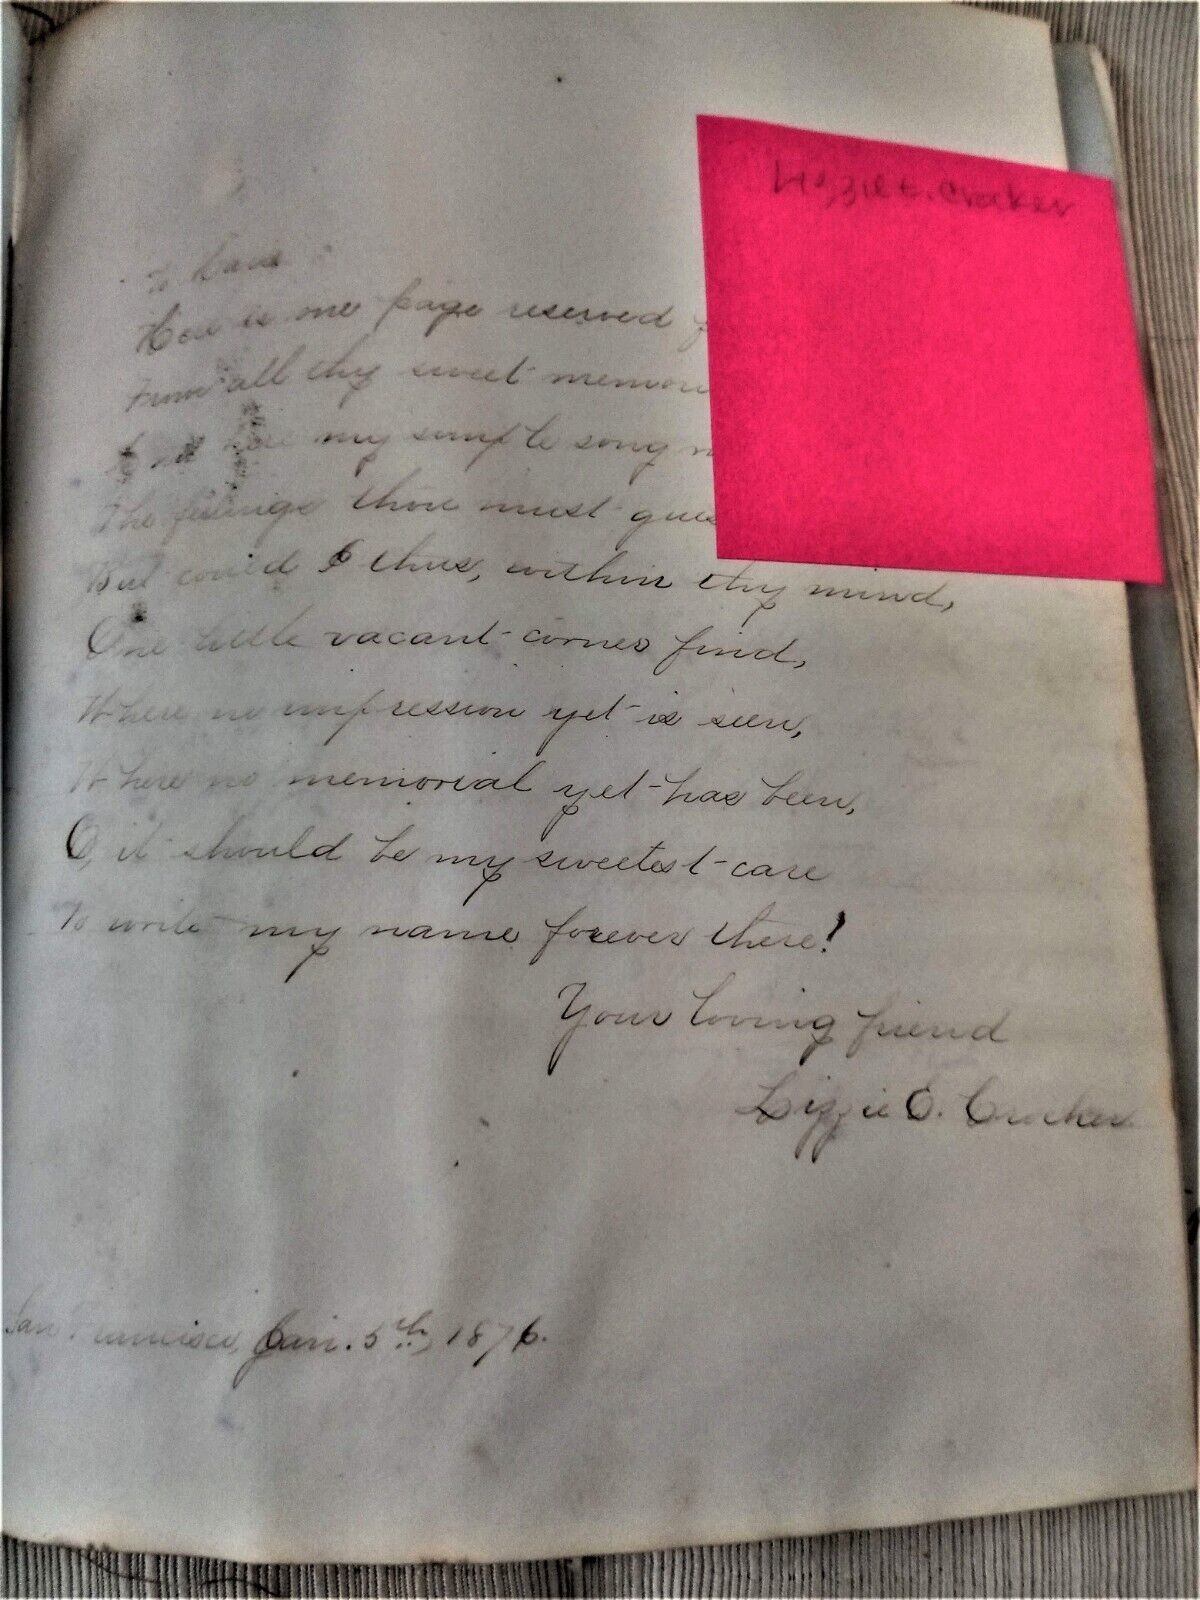 Lizzie E. Crocker
To Cara
Here is one page reserved
From all thy sweet
my simple song
The feelings thou must
But could I thus, within thy mind,
One little vacant corner find,
Where no impression yet is seen,
Where no memorial yet has been,
O, it should be my sweetest care
To write my name forever there!
Your loving friend
Lizzie E. Crocker
San Francisco, Jan. 5th, 1876.